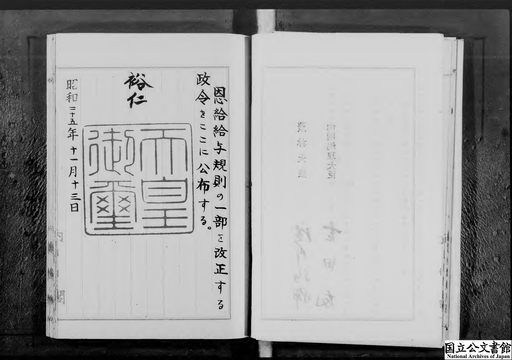 恩給給与規則の一部を改正する
政令をここに公布する。
裕仁
天皇
御璽
昭和二十五年十一月十三日
国立公文書館
National Archives of Japan